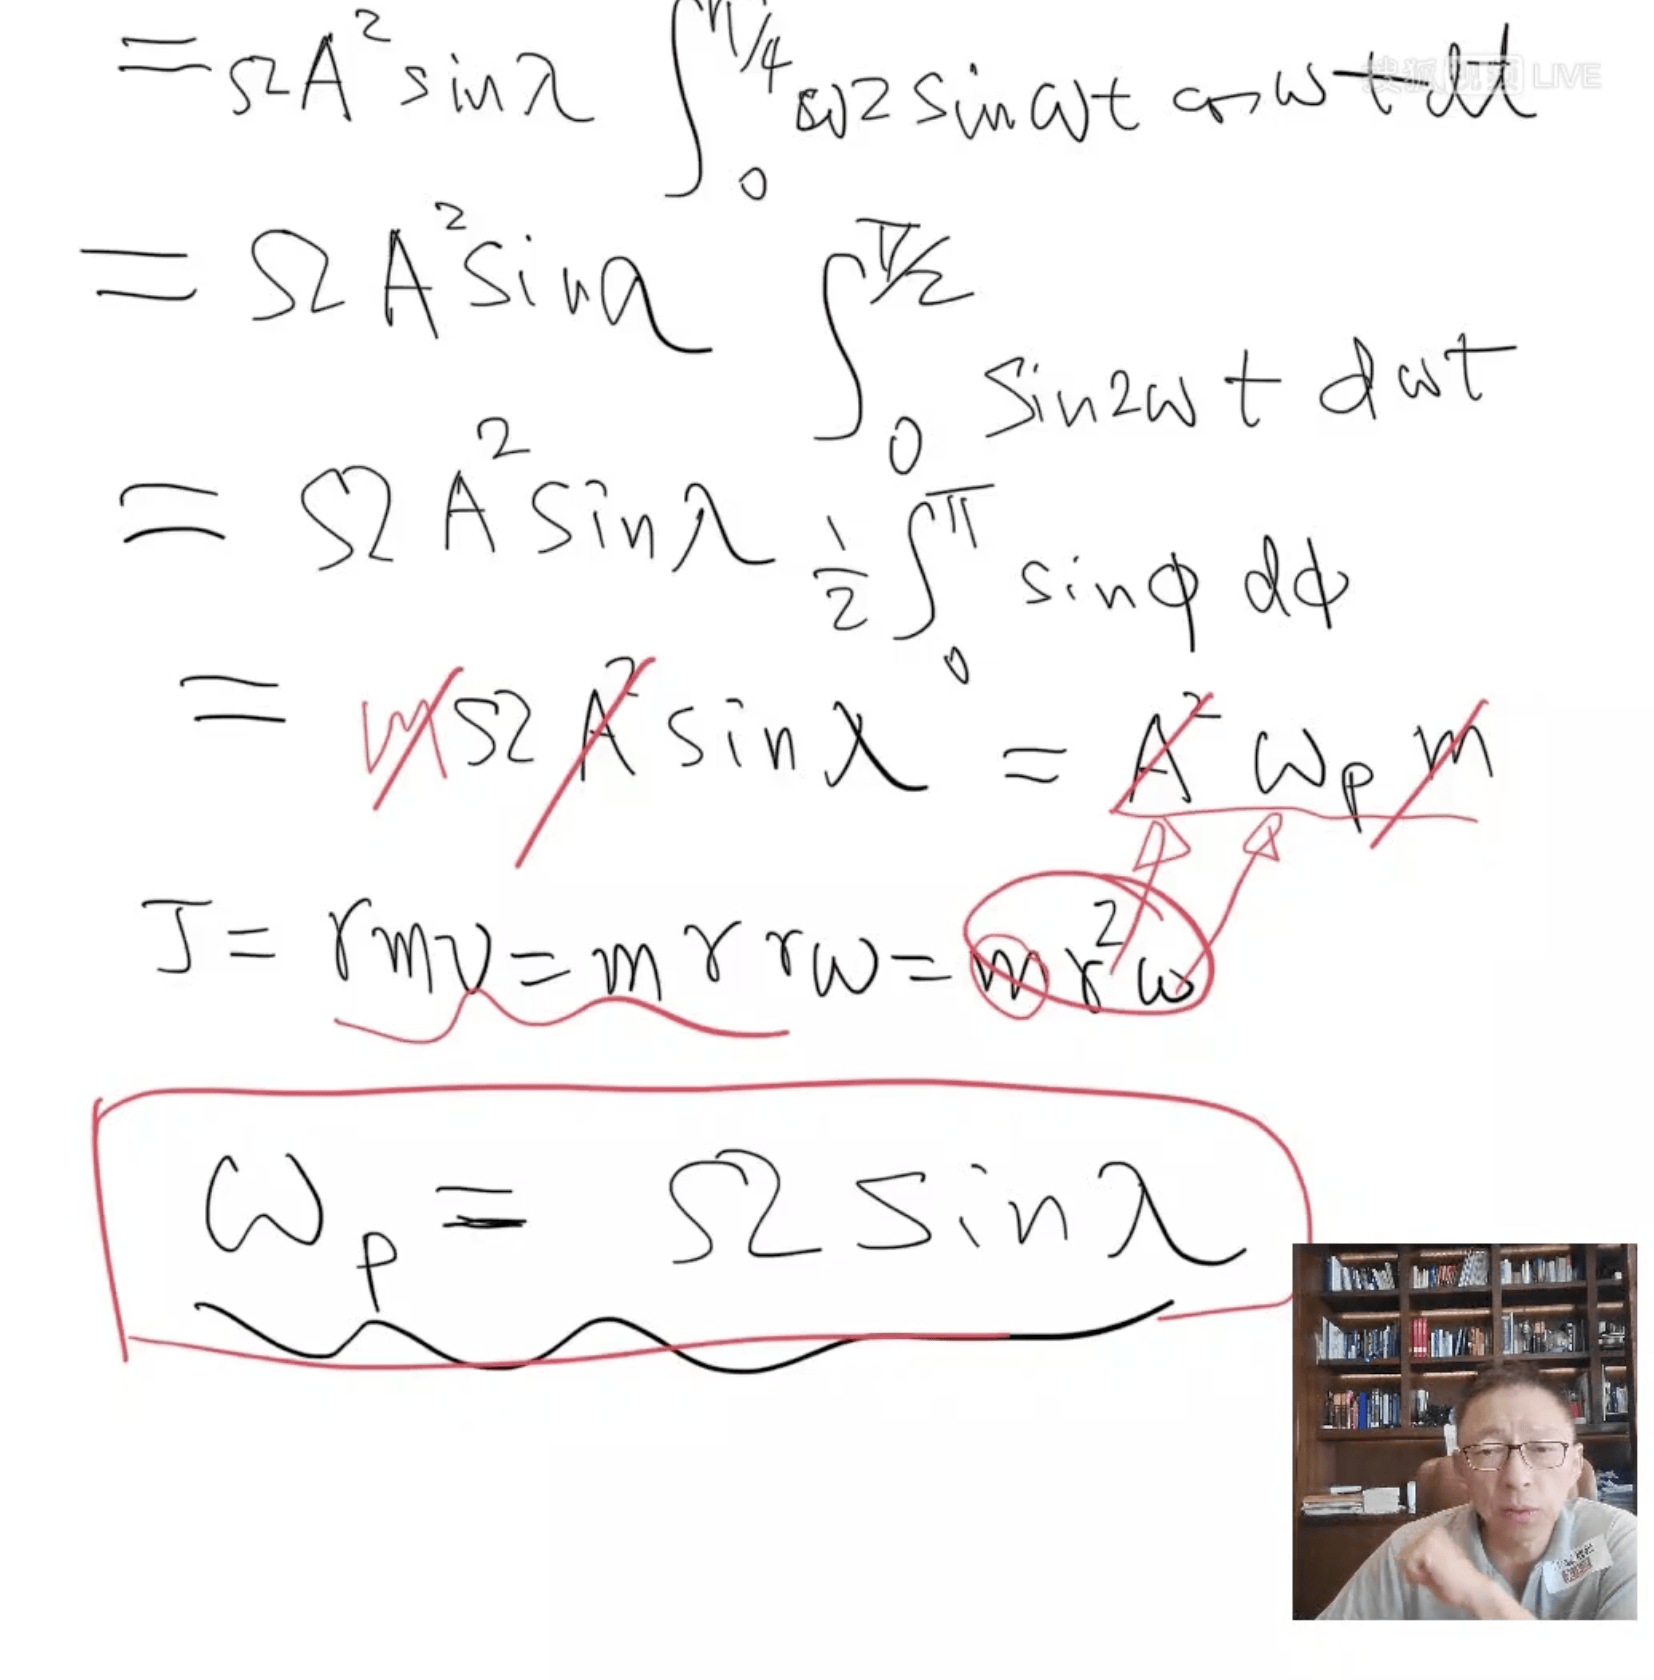 = ΩA² sinλ ∫₀^{π/4} ω2 sin ωt cos ωt dt
搜狐视频 LIVE
= Ω A² sin λ ∫₀^{π/2} sin2ωt dωt
= Ω A² sin λ 1/2 ∫₀^π sinφ dφ
= m Ω A² sin λ = A² ω_p m
J = r m v = m r r ω = m r² ω
ω_p = Ω sin λ